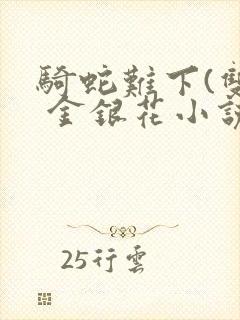 騎蛇難下(雙
金銀花小說
25行雲